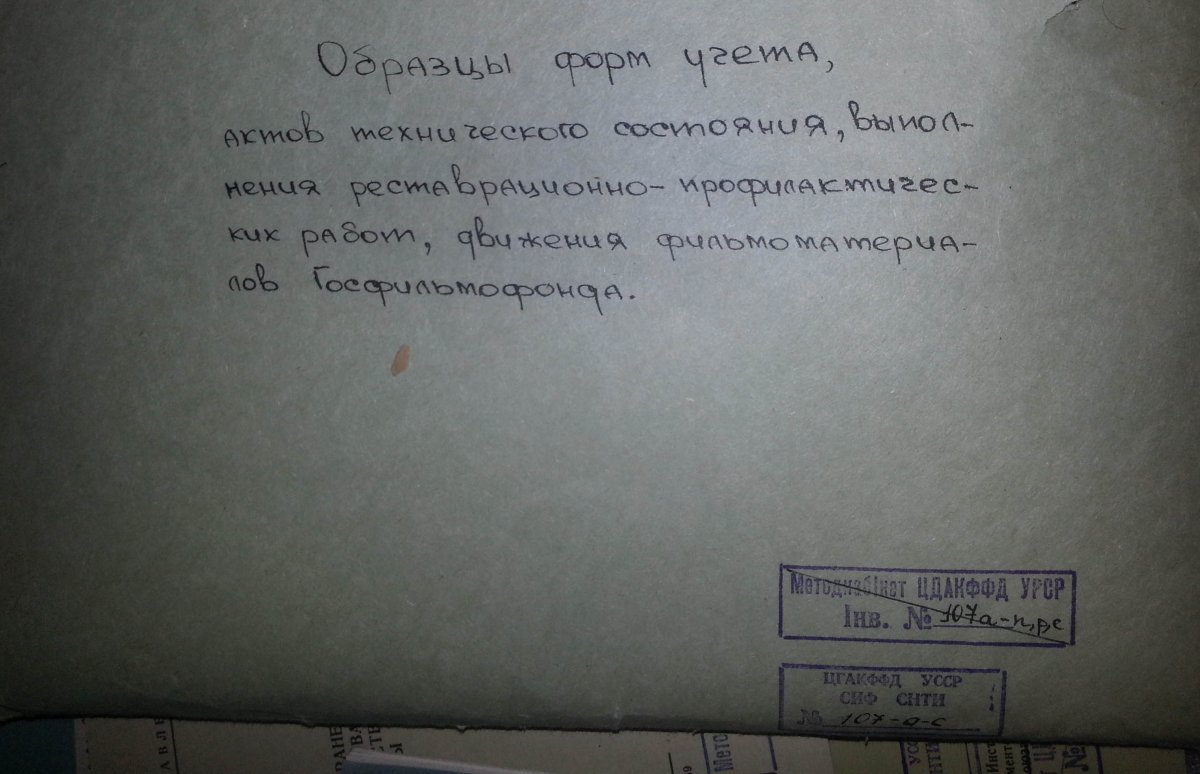 Образцы форм учета,
актов технического состояния, выпол-
нения реставрационно-профилактичес-
ких работ, движения фильмоматериа-
лов Госфильмофонда.
Методкабінет ЦДАКФФД УРСР
Інв. №
ЦГАКФФД УССР
СИФ СНТИ
№ 107-а-с